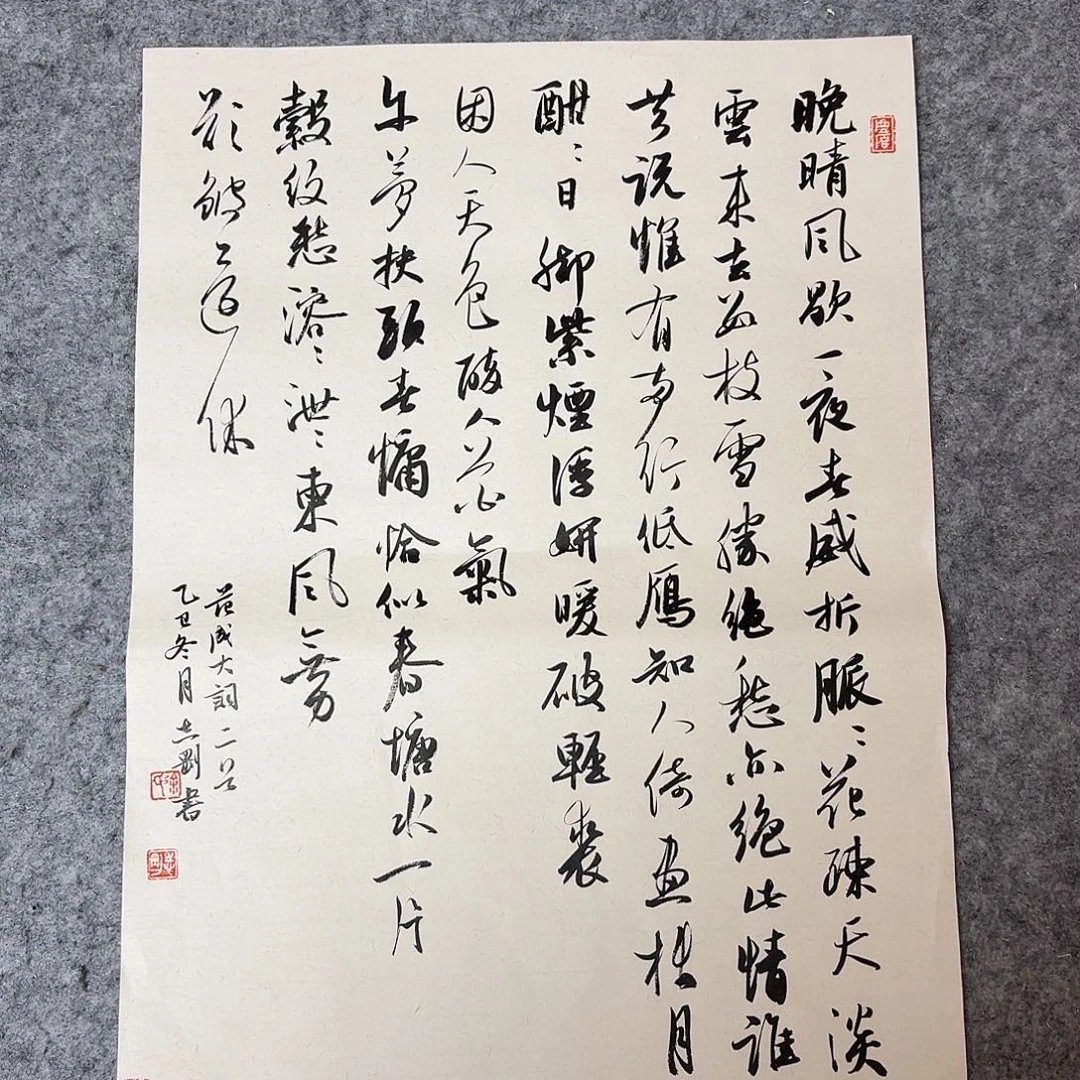 晚晴風歇一夜春威折脈〻花疎天淡
雲来去數枝雪勝絶愁亦絶此情誰
共説惟有两行低鴈知人倚畫楼月
酣〻日脚紫煙浮妍暖破輕裘
困人天色醉人花氣
午夢扶頭春慵恰似春塘水一片
縠紋愁溶〻泄〻東風無力
欲皺還休
范成大詞二首
乙巳冬月志剛書